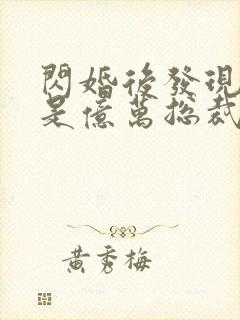 閃婚後發現
是億萬總裁
黃秀梅